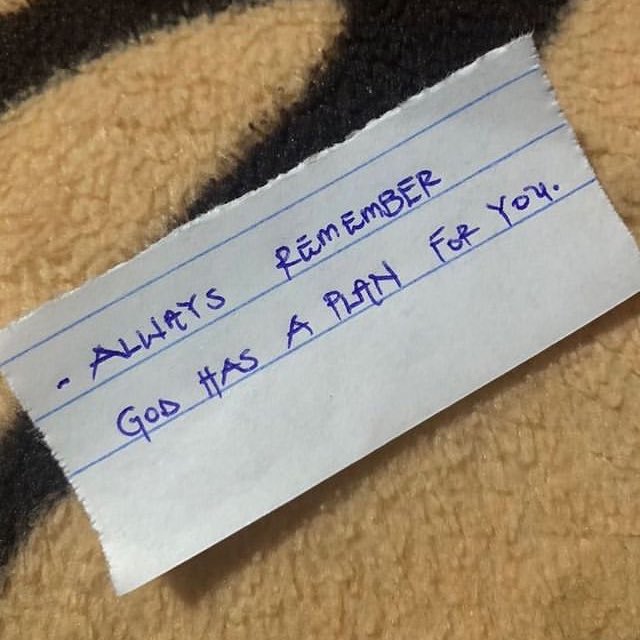 - ALWAYS REMEMBER
GOD HAS A PLAN FOR YOU.